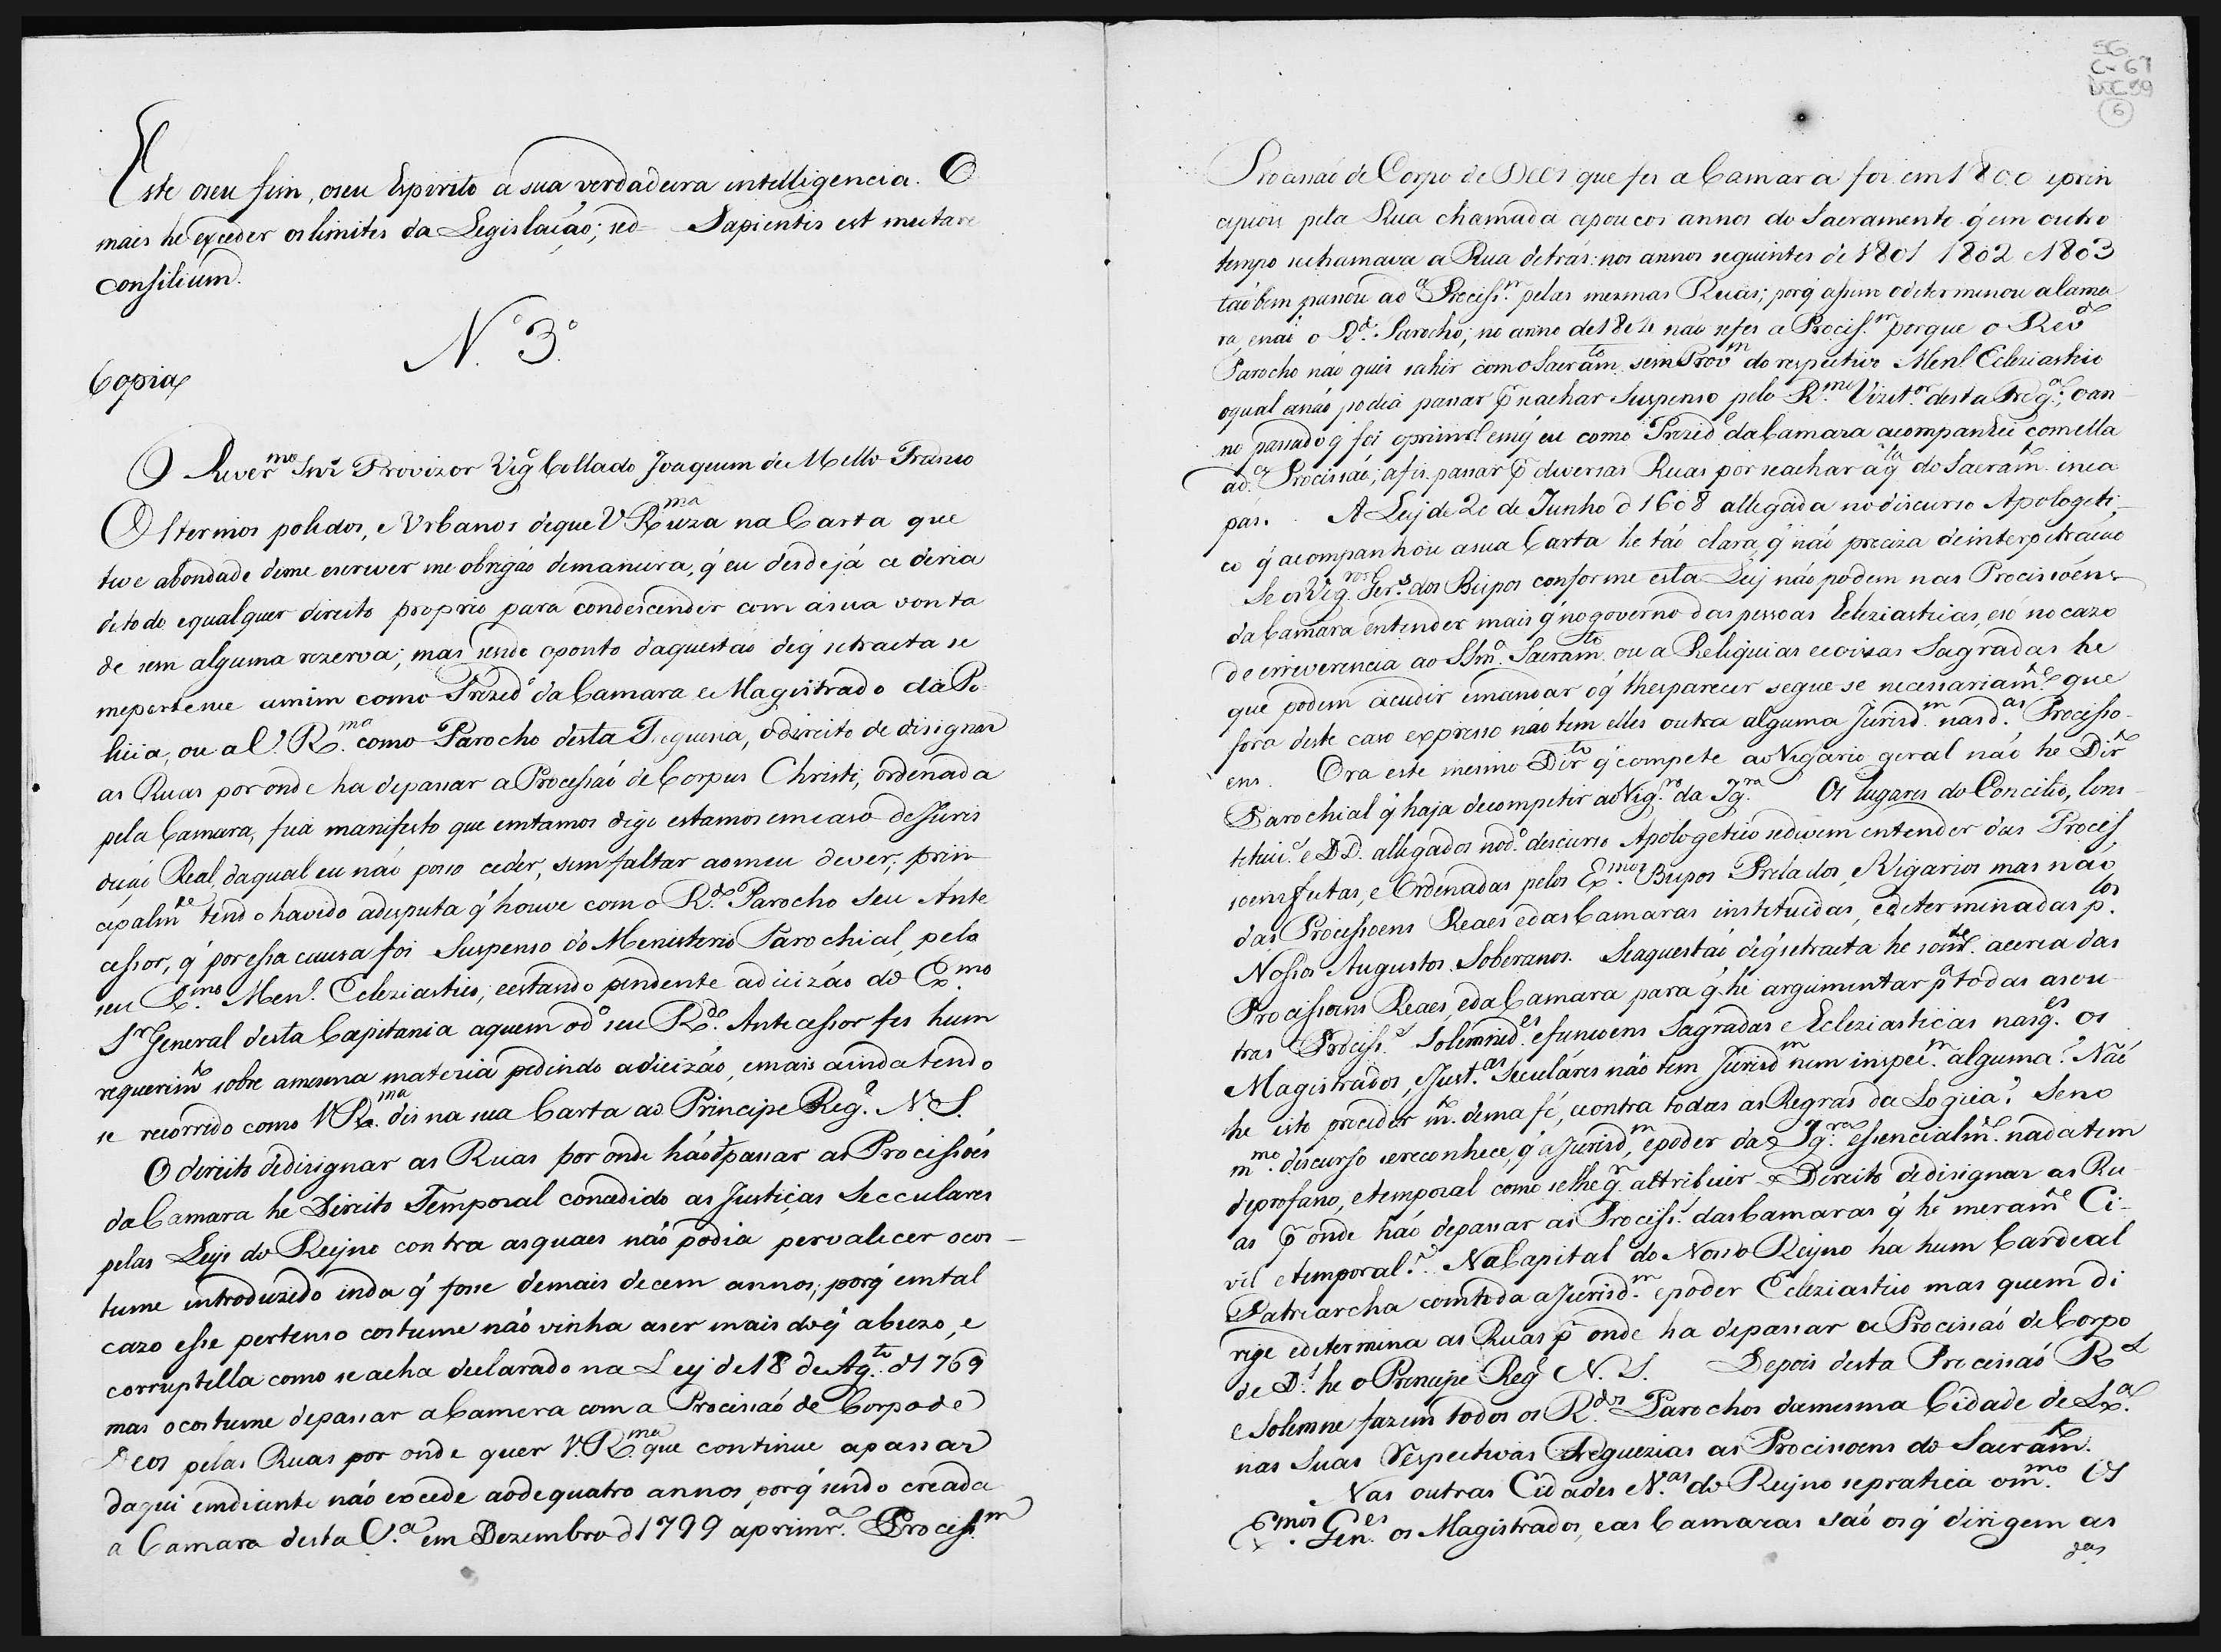 Este oseu fim, oseu Espirito a sua verdadeira intelligencia. O
mais he exceder os limites da Legislaçaõ; sed Sapientis est mutare
consilium.
N.º 3.º
Copia
O Rever.mo Snr Provizor Vig.º Collado Joaquim de Mello Franco
Os termos polidos, e Urbanos deque V R.ma uza na Carta que
teve abondade deme escrever me obrigaõ demaneira, q̃ eu desdejá cederia
detodo equalquer direito proprio para condescender com ásua vonta
de sem alguma rezerva; mas sendo oponto daquestaõ deq̃ setracta se
mepertence amim como Prezid.e da Camara e Magistrado da Po-
licia, ou a V. R.ma como Parocho desta Freguesia, odireito de disignar
as Ruas poronde ha depassar a Processaõ de Corpus Christi, ordenada
pela Camara, fica manifesto que emtamos digo estamos emcaso deJuris
diçaõ Real, daqual eu naõ posso ceder, semfaltar aomeu dever; prin
cipalm.te tendo havido adisputa q̃ houve como R.do Parocho seu Ante
cessor, q̃ poressa causa foi Suspenso do Menisterio Parochial, pelo
seu R.mo Men.º Eclesiastico, eestando pendente adicizaõ do Ex.mo
Sr General desta Capitania aquem od.º seu R.do Antecessor fes hum
requerim.to sobre amesma materia pedindo adicizaõ, emais aindatendo
se recorrido como V R.ma dis na sua Carta ao Principe Reg.e N. S.
O direito dedisignar as Ruas por onde haõ d passar as Procissoẽs
daCamara he Direito Temporal concedido as Justiças Secculares
pelas Leys do Reyno contra asquaes naõ podia pervalecer ocos-
tume introduzido inda q̃ fosse demais decem annos; porq̃ emtal
cazo esse pertenso costume naõ vinha aser mais doq̃ abuzo, e
corruptella como seacha declarado na Ley de 18 de Ag.to d1769
mas ocostume depassar aCamera com a Procissaõ de Corpode
Deos pelas Ruas por onde quer V. R.ma que continue apassar
daqui emdiante naõ excede aodequatro annos porq̃ sendo creada
a Camara desta V.a em Dezembro d1799 aprimr.a Prociss.m
SG
C-67
DOC 59
6
Procissaõ de Corpo de Deos que fes a Camara foi em 1800 eprin
cipiou pela Rua chamada apoucos annos do Sacramento q̃ em outro
tempo sechamava a Rua detrás: nos annos seguintes de 1801 1802 e1803
taõbem passou ad.a Prociss.m pelas mesmas Ruas; porq̃ assim odeterminou aCama
ra, enaõ o R.do Parocho; no anno de 1804 naõ sefes a Prociss.m porque o Rev.do
Parocho naõ quis sahir como Sacram.to sem Prov.m do respectivo Men.º Ecleziastico
oqual anaõ podia passar p.r seachar Suspenso pelo R.mo Vizit.or desta Freg.a; oan-
no passado q̃ foi oprimr.º emq̃ eu como Prezid.e daCamara acompanhei comella
ad.a Procissaõ; afis passar p.r diversas Ruas por seachar aq.la do Sacram.to inca
pas. A Ley de 20 de Junho d 1608 allegada nodiscurso Apologeti-
co q̃ acompanhou asua Carta he taõ clara, q̃ naõ preciza deinterpetraçaõ
Se os Vig.ros Ger.s dos Bispos conforme esta Ley naõ podem nas Procissoẽns
daCamara entender mais q̃ nogoverno das pessoas Ecleziasticas, esó no cazo
de irreverencia ao SSm.º Sacram.to ou a Reliquias ecoizas Sagradas he
que podem acudir emandar oq̃ lhesparecer segue-se necessariam.te que
fora deste caso expresso naõ tem elles outra alguma Jurisd.m nas d.as Processo-
ens. Ora este mesmo Dir.to q̃ compete ao Vigario geral naõ he Dir.to
Parochial q̃ haja decompetir ao Vig.ro da Ig.ra Os lugares do Concilio, Cons-
tituic.s e DD. allegados nod.º discurso Apologetico sedevem entender das Procis
soens feitas, e Ordenadas pelos Ex.mos Bispos Prelados, e Vigarios mas naõ
das Processoens Reaes edas Camaras instituidas, edeterminadas p.los
Nossos Augustos Soberanos. Se aquestaõ deq̃ setracta he som.te acerca das
Processoens Reaes, eda Camara para q̃ he argumentar p.a todas asou-
tras Prociss.s Solemnid.es efuncoens Sagradas e Ecleziasticas nasq.es os
Magistrados, e Just.as Seculáres naõ tem Jurisd.m nem inspec.m alguma? Naõ
he isto proceder m.to dema fé, econtra todas as Regras da Logica? Seno
m.mo discurso sereconhece, q̃ a Jurisd.m, epoder da Ig.ra essencialm.te nadatem
deprofano, etemporal como selhe q.r attribuir o Direito dedisignar as Ru-
as p.r onde haõ depassar as Prociss.s dasCamaras q̃ he meram.te Ci-
vil e temporal? NaCapital do Nosso Reyno ha hum Cardeal
Patriarcha comtoda aJurisd.m epoder Ecleziastico mas quem di
rige edetermina as Ruas p.r onde ha depassar a Procissaõ deCorpo
de D.s he o Principe Reg.e N. S. Depois desta Procissaõ R.l
e Solemne fazem todos os R.dos Parochos damesma Cidade de Lx.a
nas Suas Respectivas Freguezias as Procissoens do Sacram.to
Nas outras Cidades e V.as do Reyno sepratica om.mo Os
Ex.mos Gen.es os Magistrados, eas Camaras saõ os q̃ dirigem as